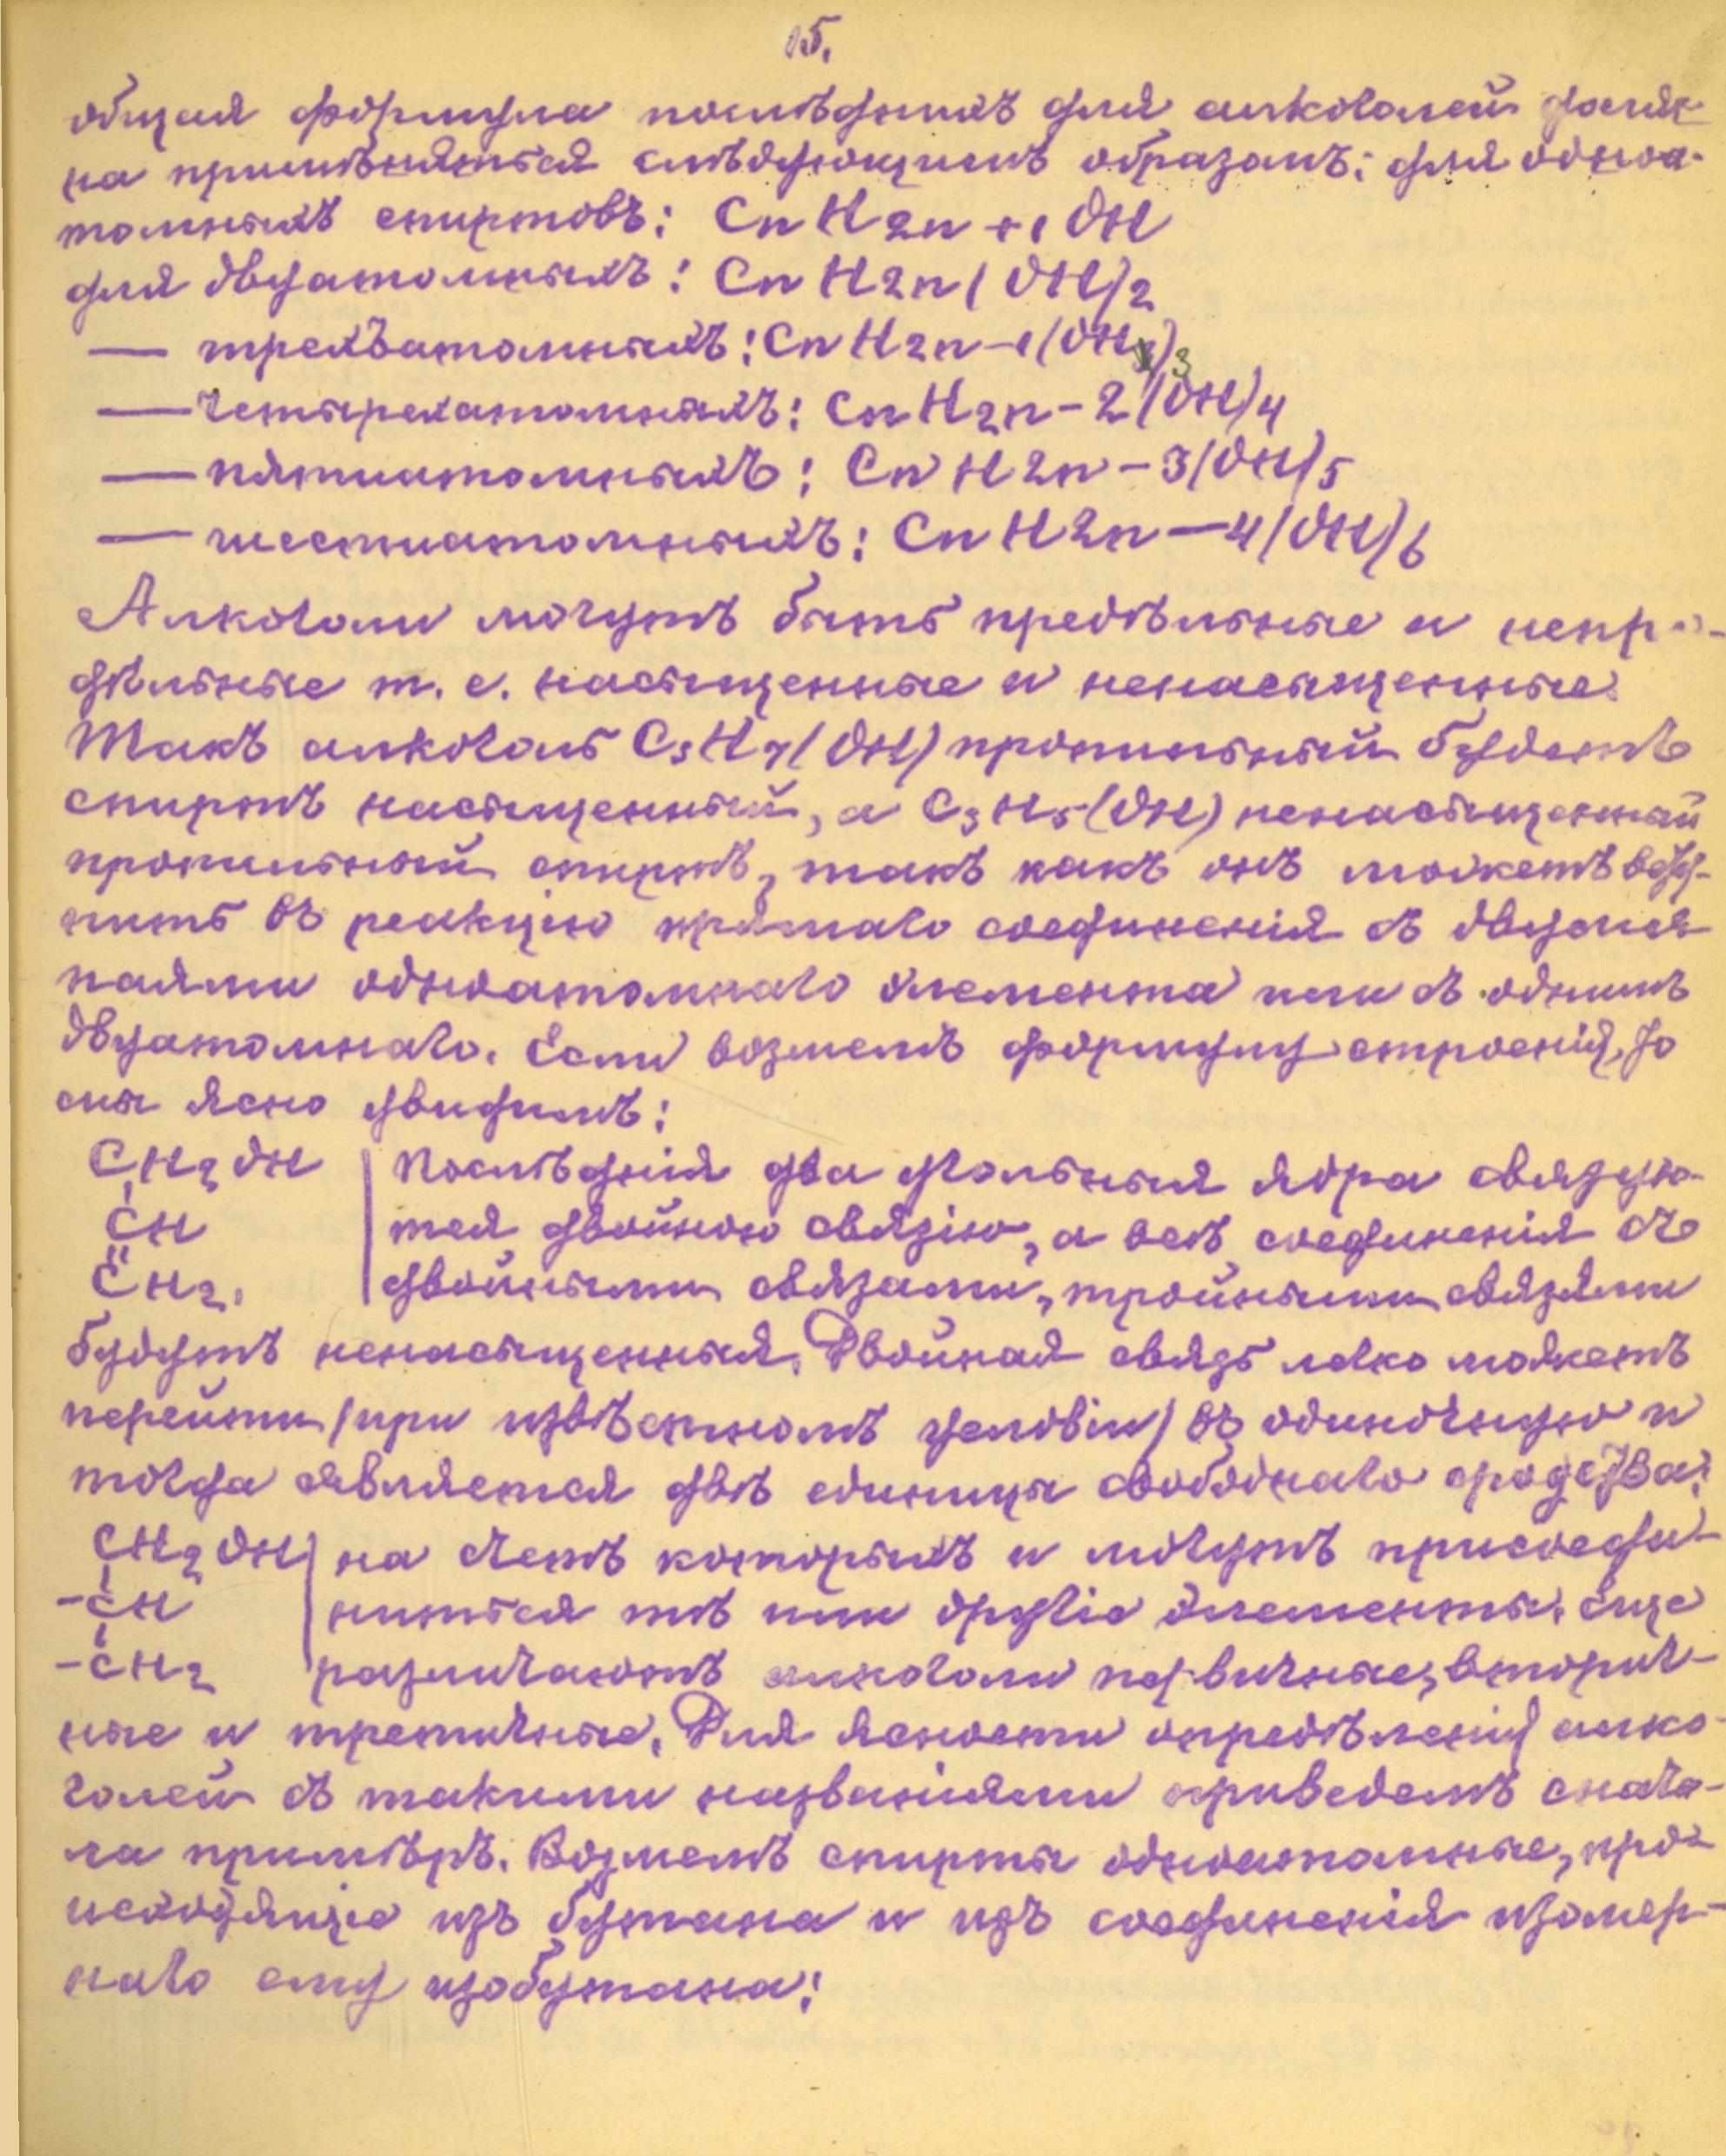 15.
общая формула послѣднихъ для алкоголей долж-
на примѣняться слѣдующимъ образомъ: для одноа-
томныхъ спиртовъ: CnH2n+1OH
для двуатомныхъ: CnH2n(OH)2
— трехъатомныхъ: CnH2n-1(OH)3
— четырехатомныхъ: CnH2n-2(OH)4
— пятиатомныхъ: CnH2n-3(OH)5
— шестиатомныхъ: CnH2n-4(OH)6
Алкоголи могутъ быть предѣльные и непре-
дѣльные т. е. насыщенные и ненасыщенные.
Такъ алкоголь C3H7(OH) пропильный будетъ
спиртъ насыщенный, а C3H5(OH) ненасыщенный
пропильный спиртъ, такъ какъ онъ можетъ всту-
пить въ реакцію прямаго соединенія съ двумя
паями одноатомнаго элемента или съ однимъ
двуатомнаго. Если возмемъ формулу строенія, то
мы ясно увидимъ:
CH2OH | Послѣднія два угольныя ядра связую-
CH | тся двойною связію, а всѣ соединенія съ
CH2. | двойными связами, тройными связями
будутъ ненасыщенныя. Двойная связь легко можетъ
перейти (при извѣстномъ условіи) въ одиночную и
тогда является двѣ единицы свободнаго сродства:
CH2OH | на счетъ которыхъ и могутъ присоеди-
-CH | ниться тѣ или другіе элементы. Еще
-CH2 различаютъ алкоголи первичные, вторич-
ные и третичные. Для ясности опредѣленія алко-
голей съ такими названіями приведемъ снача-
ла примѣръ. Возмемъ спирты одноатомные, про-
исходящіе изъ бутана и изъ соединенія изомер-
наго ему изобутана: